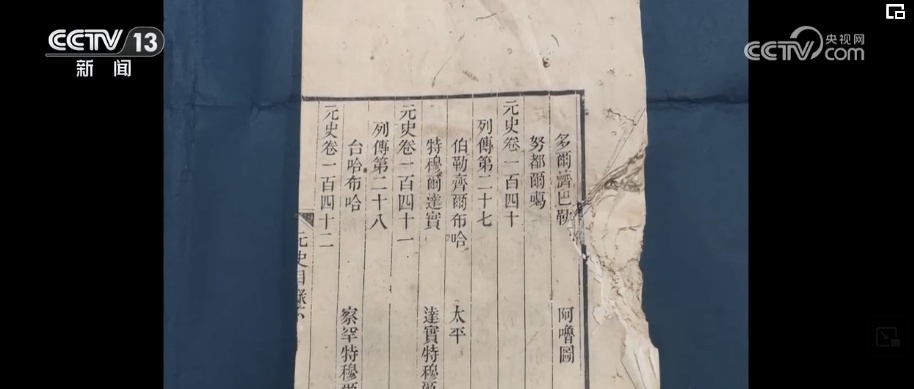 CCTV 13
新闻
CCTV 央视网
com
多爾濟巴勒 阿嚕圖
努都爾噶
元史卷一百四十
列傳第二十七
伯勒齊爾布哈 太平
特穆爾達實 達實特穆爾
元史卷一百四十一
列傳第二十八
台哈布哈 察罕特穆爾
元史卷一百四十二
元史目錄